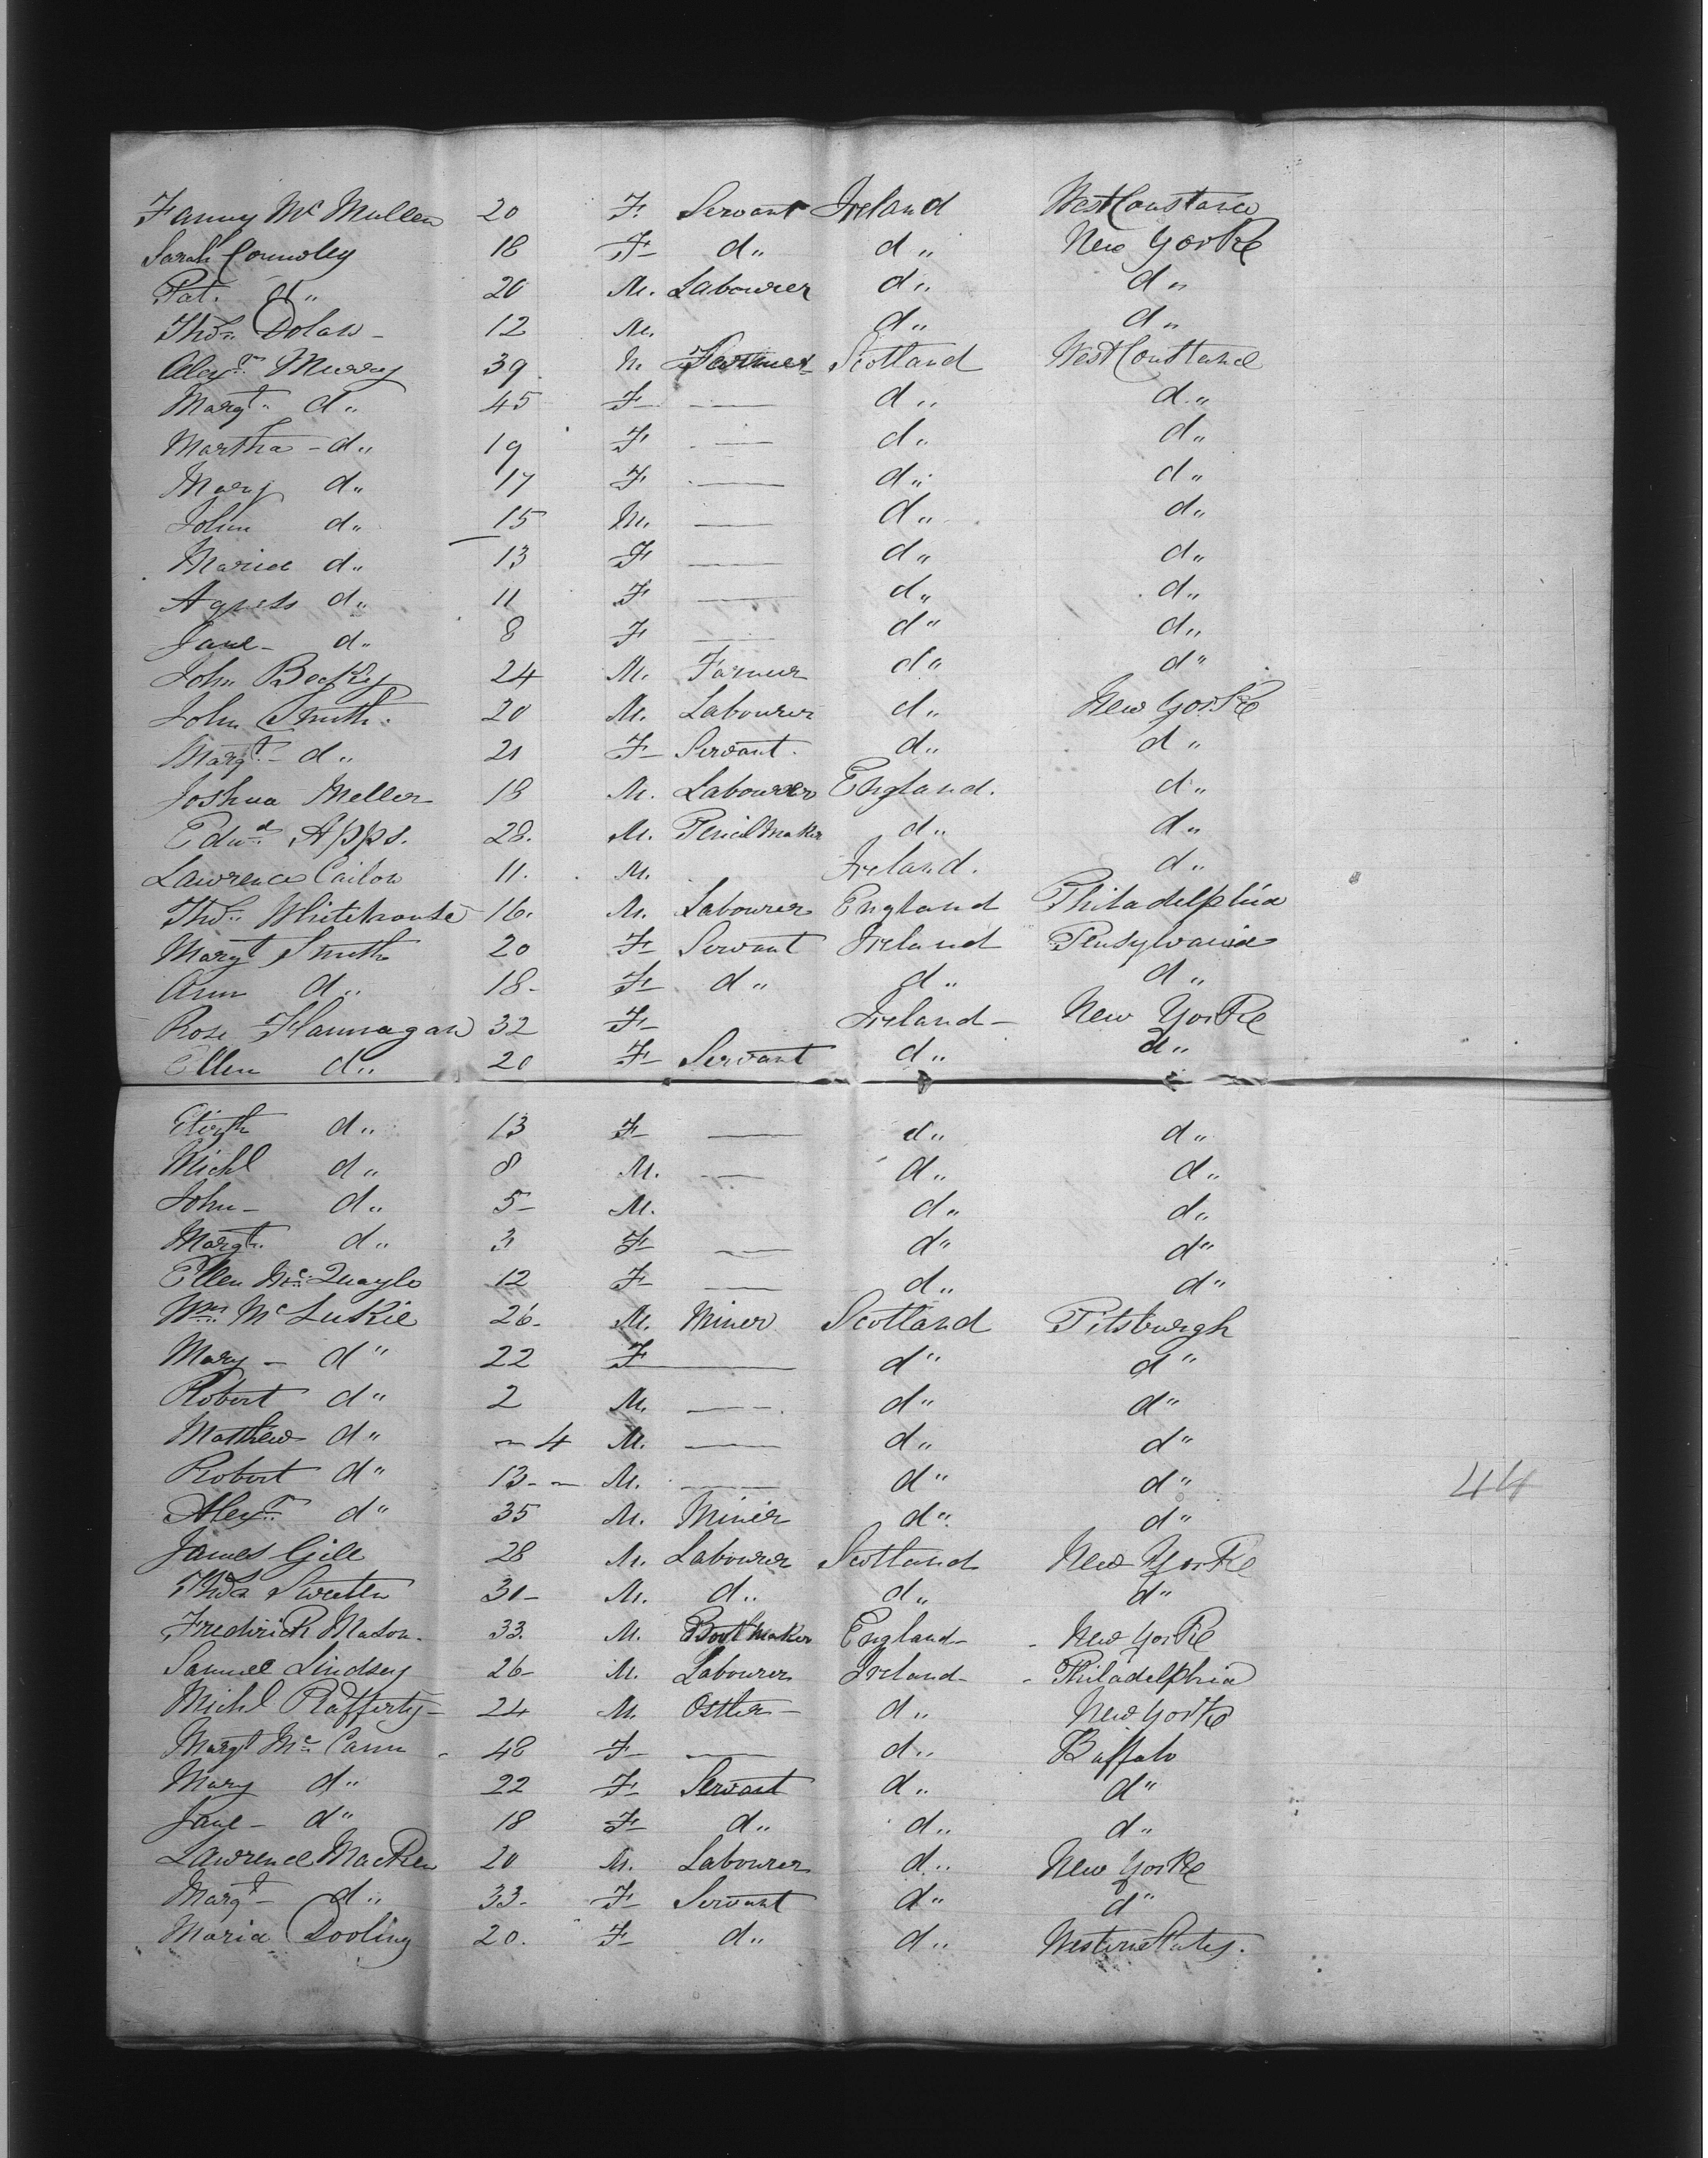 Fanny Mc Mullen 20 F. Servant Ireland West Constance
Sarah Connoley 18 F d,, d,, New Yorke
Pat. d,, 20 M. Labourer d,, d,,
Thos. Dolan 12 M. d,, d,,
Alexr. Murray 39 M. Farmer Scotland
Margt. d,, 45 F — d,, d,,
Martha d,, 19 F — d,, d,,
Mary d,, 17 F — d,, d,,
John d,, 15 M. — d,, d,,
Maria d,, 13 F — d,, d,,
Agness d,, 11 F — d,, d,,
Jane d,, 8 F — d,, d,,
John 24 M. Farmer d,, d,,
John Smith 20 M. Labourer d,, New Yorke
Margt. d,, 21 F Servant d,, d,,
Joshua Meller 18 M. Labourer England. d,,
Edwd. Apps. 28. M. Pencil Maker d,, d,,
Lawrence 11. M. Ireland. d,,
Thos. Whitehouse 16. M. Labourer England Philadelphia
Margt Smith 20 F Servant Ireland Pensylvania
Ann d,, 18 F d,, d,, d,,
Rose Flannagan 32 F Ireland New Yorke
Ellen d,, 20 F Servant d,, d,,
Elizth d,, 13 F — d,, d,,
Michl d,, 8 M. — d,, d,,
John d,, 5 M. d,, d,,
Margt. d,, 3 F — d,, d,,
Ellen Mc Quayle 12 F — d,, d,,
Wm. Mc Lukie 26 M. Miner Scotland Pitsburgh
Mary d,, 22 F — d,, d,,
Robert d,, 2 M. — d,, d,,
Mathew d,, 4 M. — d,, d,,
Robert d,, 13 M. — d,, d,,
44
Alexr. d,, 35 M. Miner d,, d,,
James Gill 28 M. Labourer Scotland New Yorke
Thos 31 M. d,, d,, d,,
Frederick Mason 33. M. Boot Maker England New Yorke
Samuel Lindsey 26 M. Labourer Ireland Philadelphia
Michl Rafferty 24 M. Ostler d,, New Yorke
Margt Mc Cann 48 F — d,, Buffalo
Mary d,, 22 F Servant d,, d,,
Jane d,, 18 F d,, d,, d,,
Lawrence Macken 20 M. Labourer d,, New Yorke
Margt d,, 33. F Servant d,, d,,
Maria Dooling 20. F d,, d,, Western States.